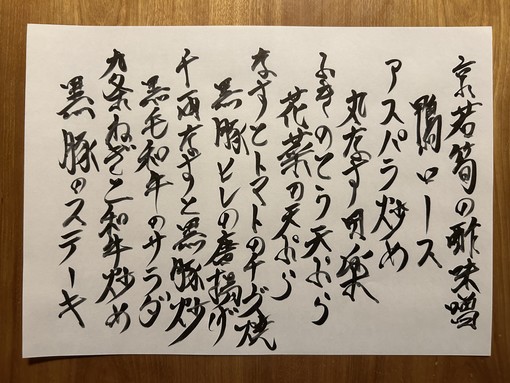 京若筍の酢味噌
鴨ロース
アスパラ炒め
丸なす田楽
ふきのとう天ぷら
花菜の天ぷら
なすとトマトのチーズ焼
黒豚ヒレの唐揚げ
千両なすと黒豚炒
黒毛和牛のサラダ
九条ねぎと和牛炒め
黒豚のステーキ